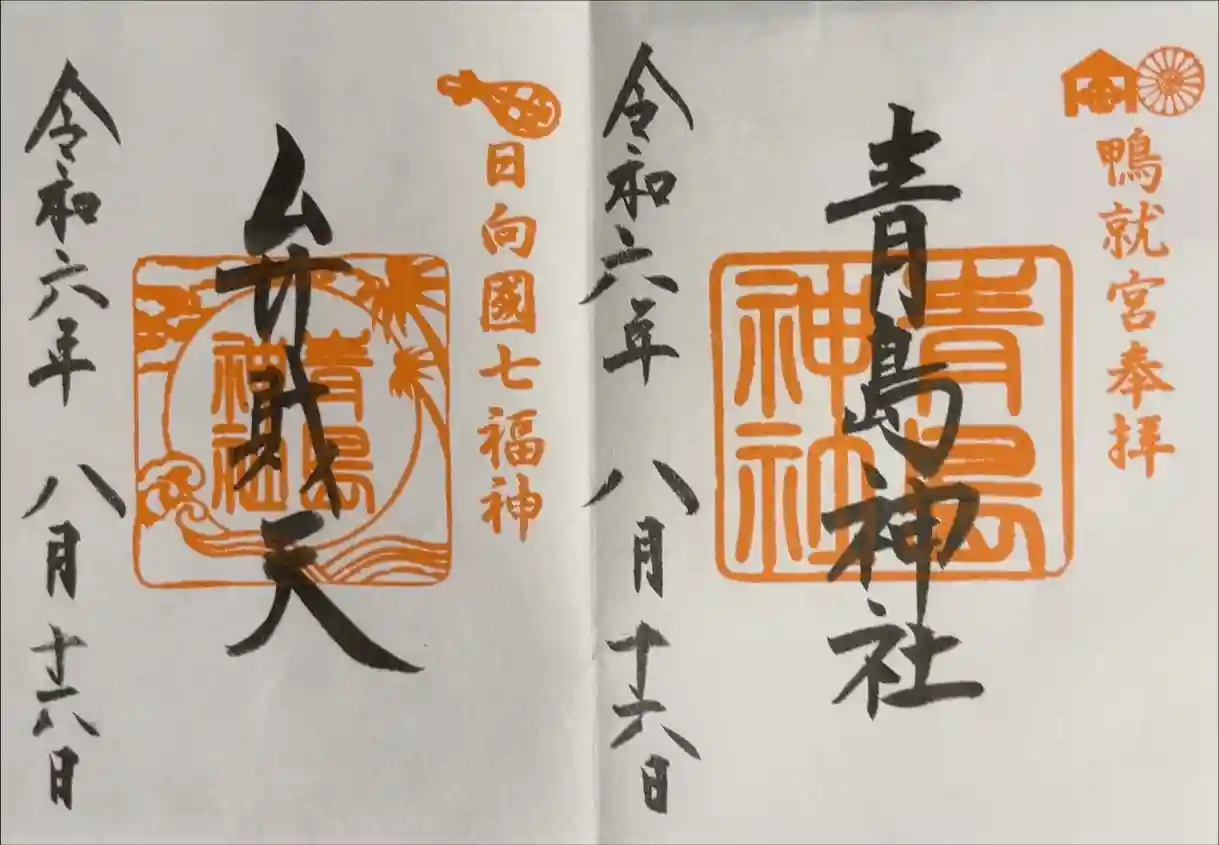 鴨就宮奉拝
青島神社
青島神社
令和六年 八月十六日
日向國七福神
弁財天
青島神社
令和六年 八月十六日